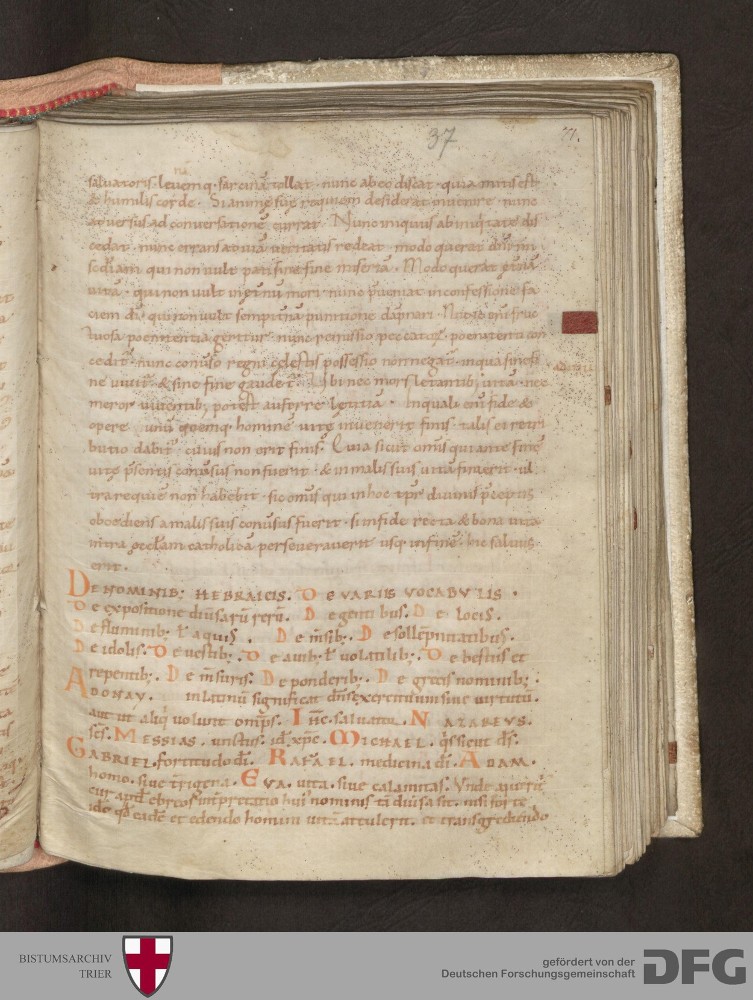 37 71.
saluatoris leuemq; sarcinā tollat · nunc ab eo discat · quia mitis est
& humilis corde · Si animę suę requiem desiderat inuenire · nunc
conuersus ad conuersationē currat · Nunc iniquus ab iniquitate dis
cedat · nunc errans ad uiā ueritatis redeat · modo querat
qui non uult pati sine fine miseriā · Modo querat
uitā · qui non uult mori · nunc pueniat in confessione fa
ciem dī · qui non uult sempitna punitione dāpnari · Nunc eni fruc
tuosa poenitentia geritur · nunc remissio peccatoꝝ · poenitenti con
cedit · nunc conuso regni cęlestis possessio non negat · in qua sine fi
ne uiuit & sine fine gaudet · Ubi nec mors letantib; uitā · nec
meror uiuentib; potest auferre lętitiā · In quali eni fide &
opere unū quemq; hominē uitę inuenerit finis · talis ei retri
butio dabit · cuius non erit finis · Quia sicut omīs qui ante finē
uitę psentis conuersus non fuerit · & in malis suis uitā finierit · ul
tra requiē non habebit · sic omīs qui in hoc tpr diuinis pceptis
oboediens a malis suis conuersus fuerit · si in fide recta & bona uita
intra ęcclam catholicā perseuerauerit usq; in finē · hic saluus
erit ·
DE NOMINIB; HEBRAICIS. De VARIIS VOCABVLIS ·
De expositione diuersarū rerū. De gentibus. De locis.
De fluminib; ł aquis. De msib;. De sollēpnitatibus.
De idolis. De uestib;. De auib; ł uolatilib;. De bestiis et
repentib;. De msuris. De ponderib;. De grecis nominib;.
ADONAY. in latinū significat dns exercituum siue uirtutū.
aut ut aliqi uolunt omps. Ihc. saluator. NAZAREVS.
scs. MESSIAS. unctus. id xpc. MICHAEL. qs sicut ds.
GABRIEL. fortitudo dī. RAFAEL. medicina dī. ADAM.
homo. siue terrigena. EVA. uita. siue calamitas. Vnde
cur apud ebreos interpretatio huius nominis diuisa sit. nisi forte
ideo qd eadē et edendo homini uitā attulerit. et transgrediendo
BISTUMSARCHIV
TRIER
gefördert von der
Deutschen Forschungsgemeinschaft
DFG